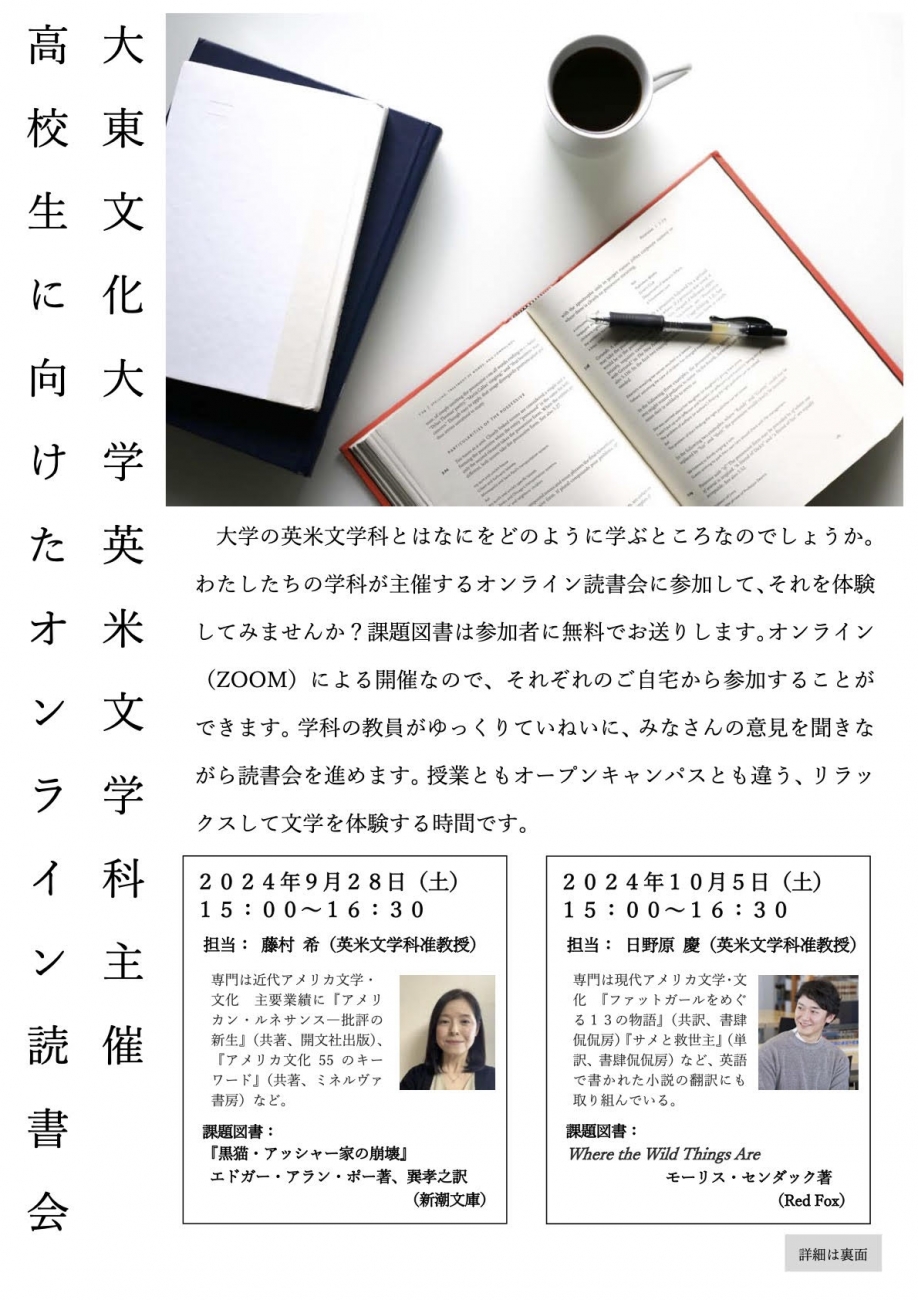 大東文化大学英米文学科主催
高校生に向けたオンライン読書会
PARTICULARITIES OF THE POSSESSIVE
大学の英米文学科とはなにをどのように学ぶところなのでしょうか。
わたしたちの学科が主催するオンライン読書会に参加して、それを体験
してみませんか？課題図書は参加者に無料でお送りします。オンライン
（ZOOM）による開催なので、それぞれのご自宅から参加することが
できます。学科の教員がゆっくりていねいに、みなさんの意見を聞きな
がら読書会を進めます。授業ともオープンキャンパスとも違う、リラッ
クスして文学を体験する時間です。
２０２４年９月２８日（土）
１５：００～１６：３０
担当： 藤村 希（英米文学科准教授）
専門は近代アメリカ文学・
文化　主要業績に『アメリ
カン・ルネサンス―批評の
新生』（共著、開文社出版）、
『アメリカ文化 55 のキー
ワード』（共著、ミネルヴァ
書房）など。
課題図書：
『黒猫・アッシャー家の崩壊』
エドガー・アラン・ポー著、巽孝之訳
（新潮文庫）
２０２４年１０月５日（土）
１５：００～１６：３０
担当： 日野原 慶（英米文学科准教授）
専門は現代アメリカ文学・文
化　『ファットガールをめぐ
る１３の物語』（共訳、書肆
侃侃房）『サメと救世主』（単
訳、書肆侃侃房）など、英語
で書かれた小説の翻訳にも
取り組んでいる。
課題図書：
Where the Wild Things Are
モーリス・センダック著
（Red Fox）
詳細は裏面